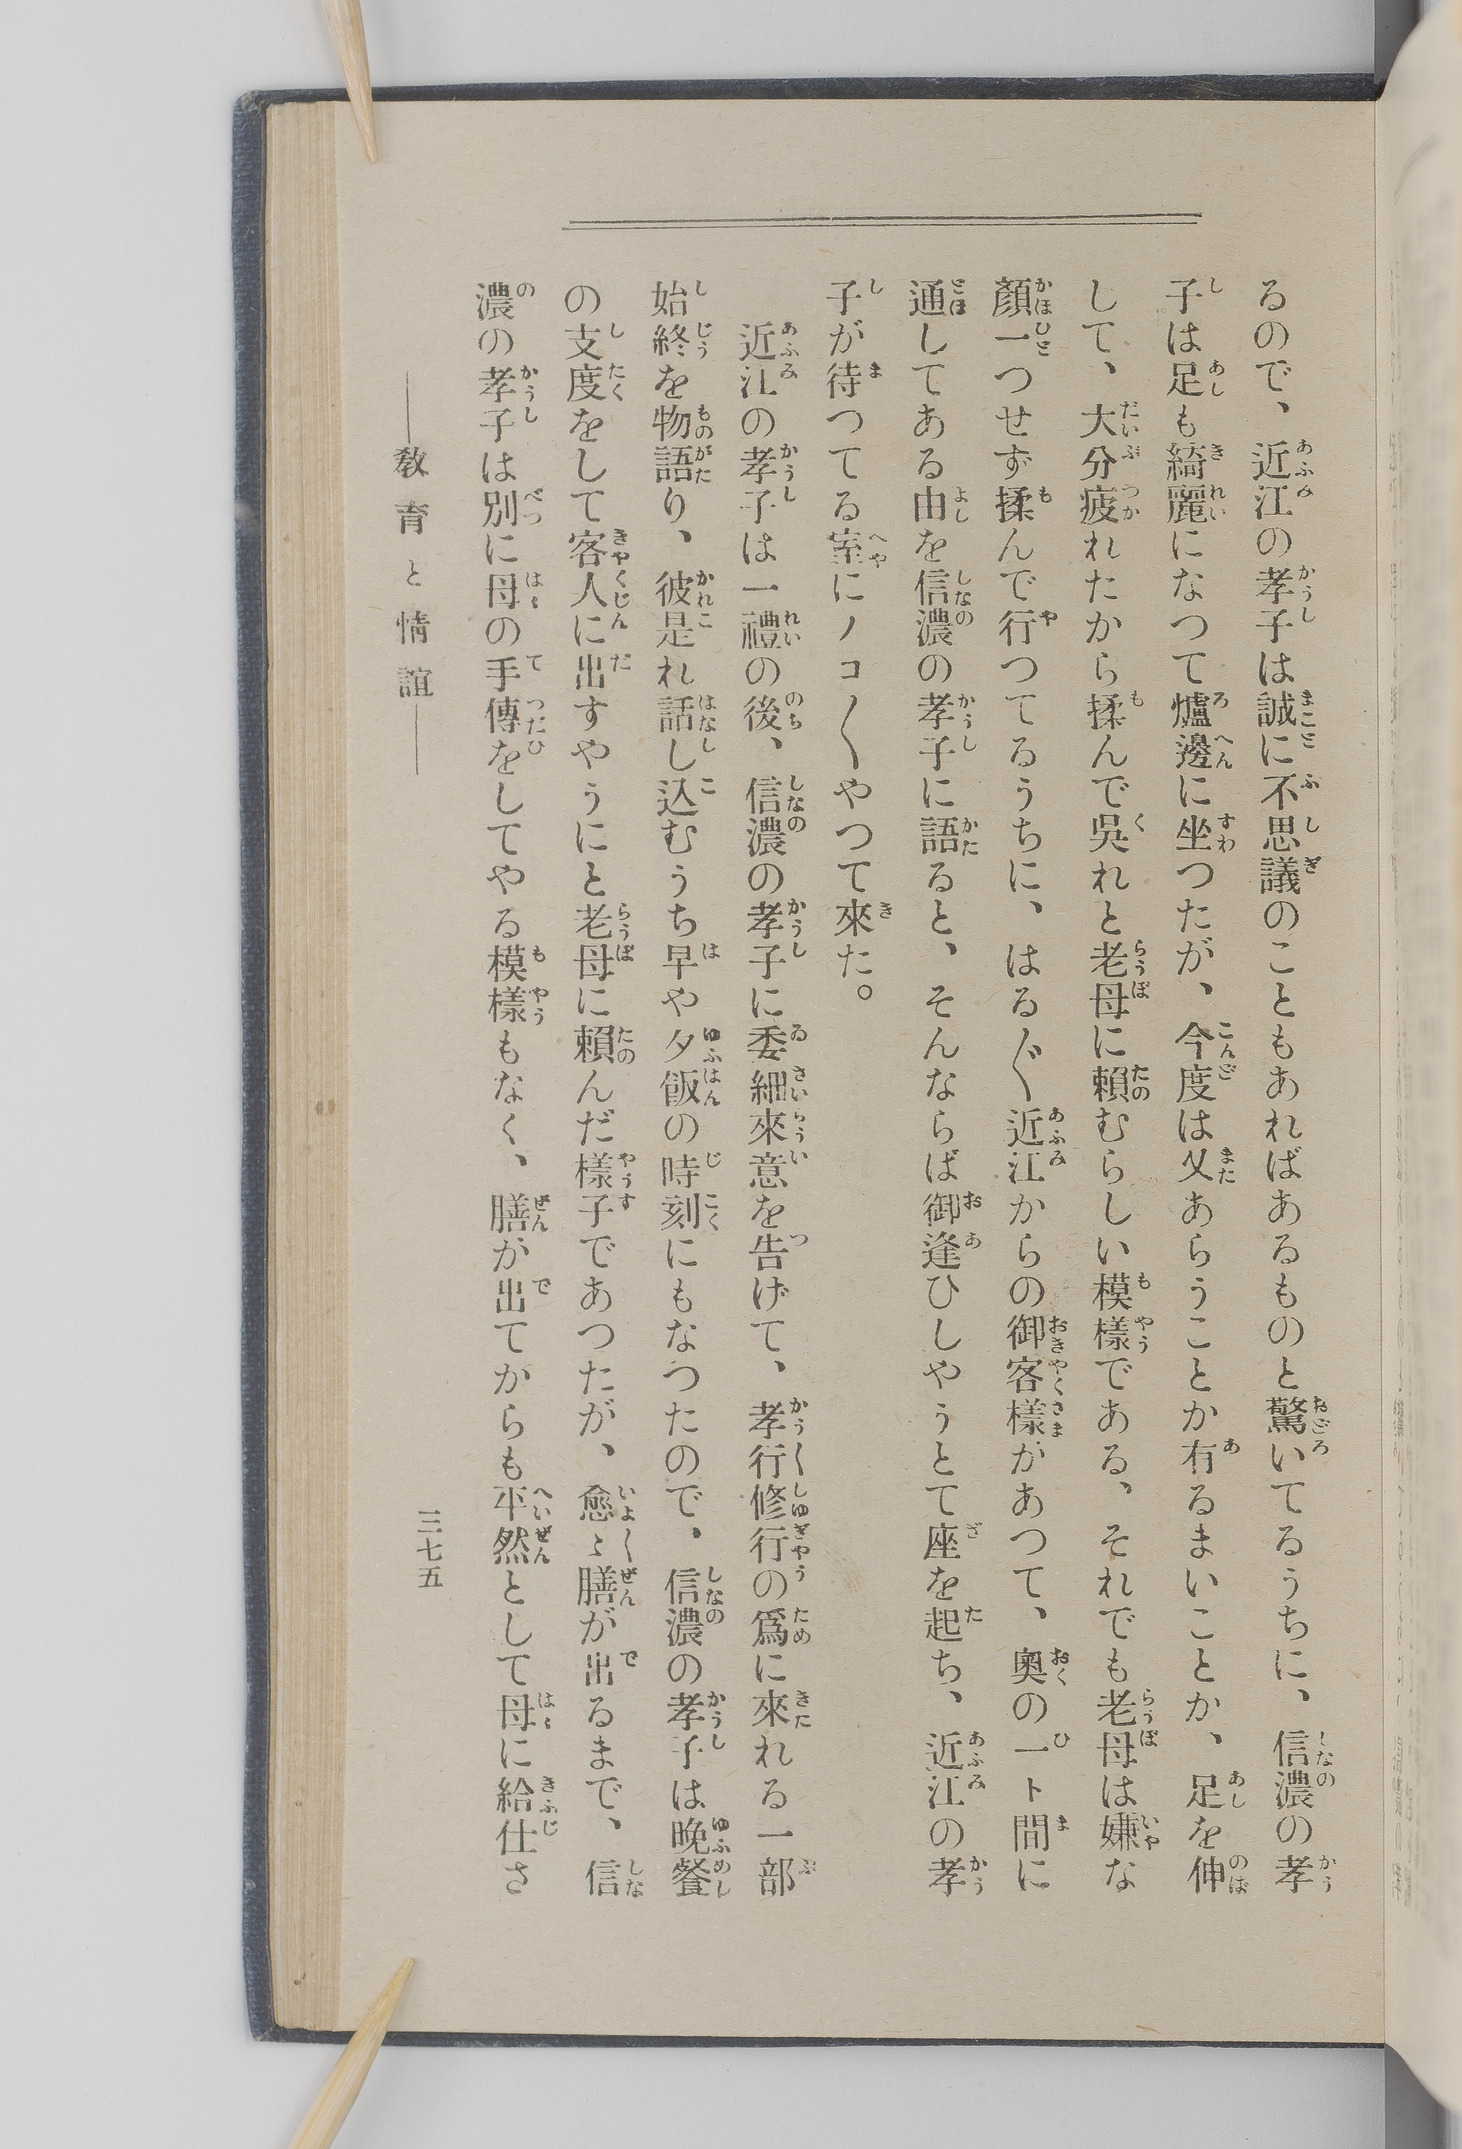 るので、近江の孝子は誠に不思議のこともあればあるものと驚いてるうちに、信濃の孝
子は足も綺麗になつて爐邊に坐つたが、今度は又あらうことか有るまいことか、足を伸
して、大分疲れたから揉んで吳れと老母に賴むらしい模樣である、それでも老母は嫌な
顏一つせず揉んで行つてるうちに、はる〴〵近江からの御客樣があつて、奧の一ト間に
通してある由を信濃の孝子に語ると、そんならば御逢ひしやうとて座を起ち、近江の孝
子が待つてる室にノコ〳〵やつて來た。
近江の孝子は一禮の後、信濃の孝子に委細來意を吿げて、孝行修行の爲に來れる一部
始終を物語り、彼是れ話し込むうち早や夕飯の時刻にもなつたので、信濃の孝子は晩餐
の支度をして客人に出すやうにと老母に賴んだ樣子であつたが、愈〻膳が出るまで、信
濃の孝子は別に母の手傳をしてやる模樣もなく、膳が出てからも平然として母に給仕さ
――敎育と情誼――
三七五